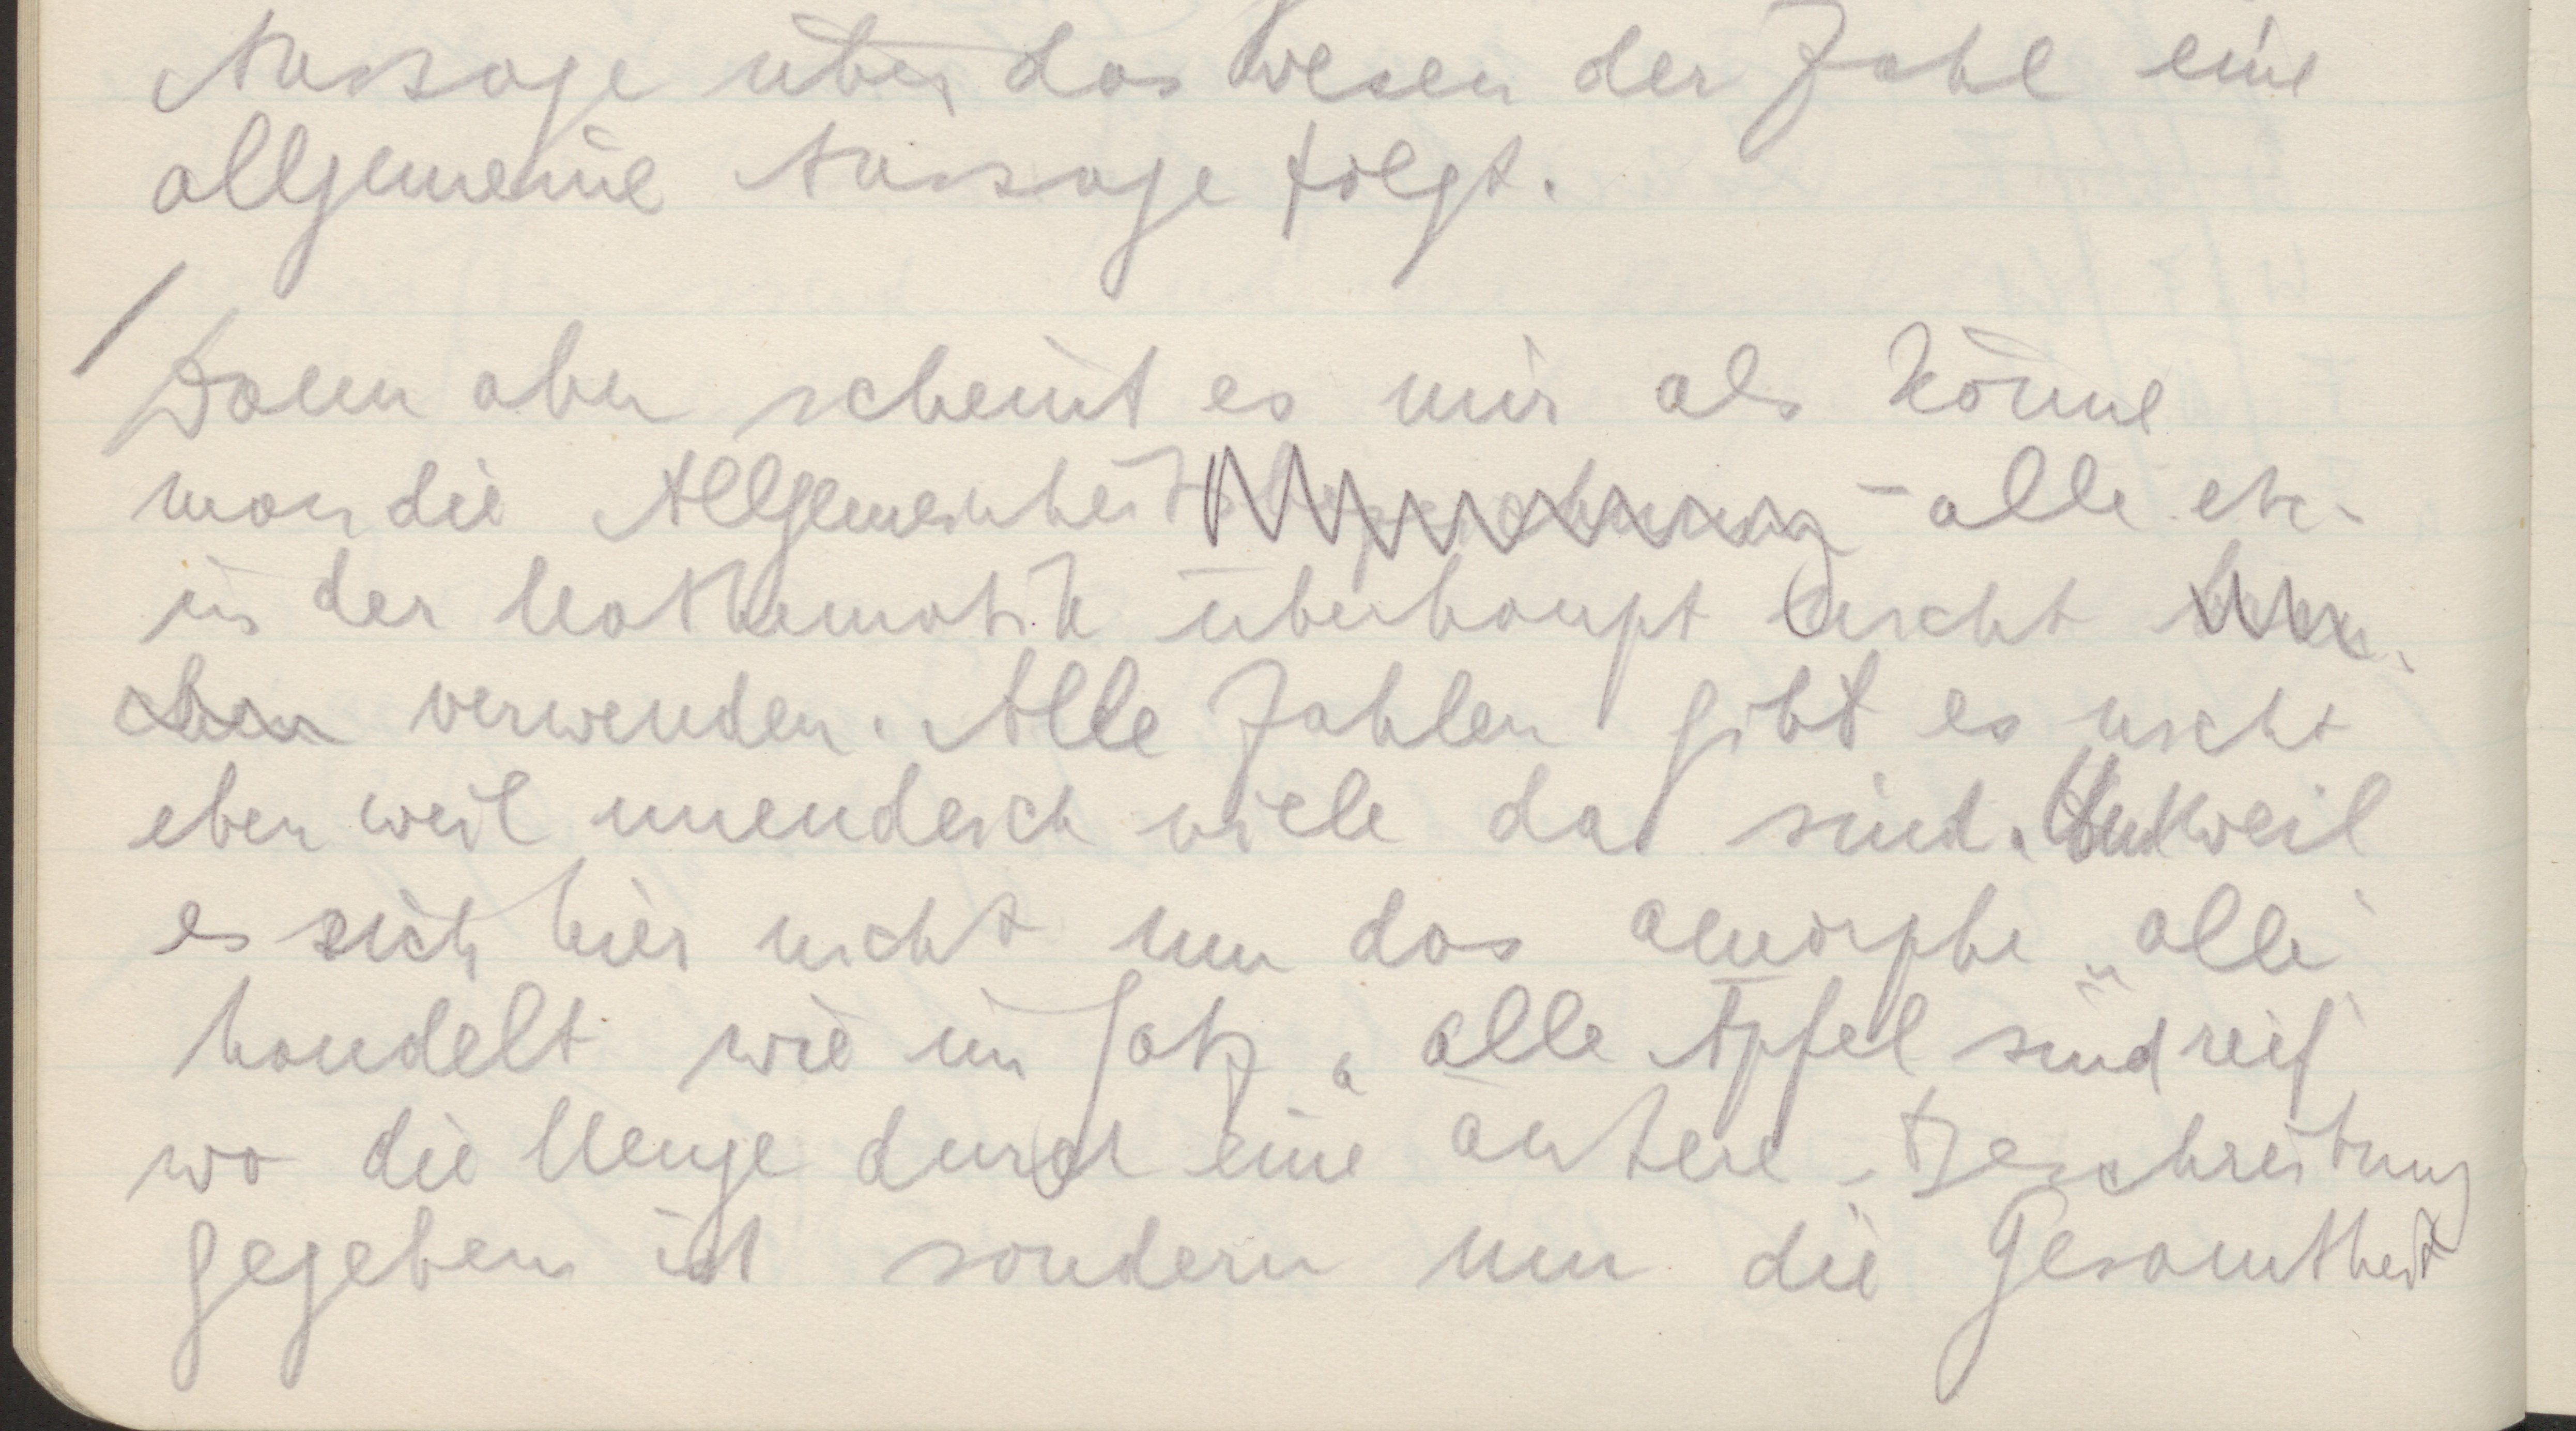 Aussage über das Wesen der Zahl eine
allgemeine Aussage folgt.
/
Dann aber scheint es mir als könne
man die Allgemeinheit – alle etc. –
in der Mathematik überhaupt nicht
verwenden. Alle Zahlen gibt es nicht
eben weil unendlich viele da sind. Und weil
es sich hier nicht um das amorphe „alle“
handelt wie im Satz „alle Äpfel sind reif“
wo die Menge durch eine äußere Beschreibung
gegeben ist sondern um die Gesamtheit